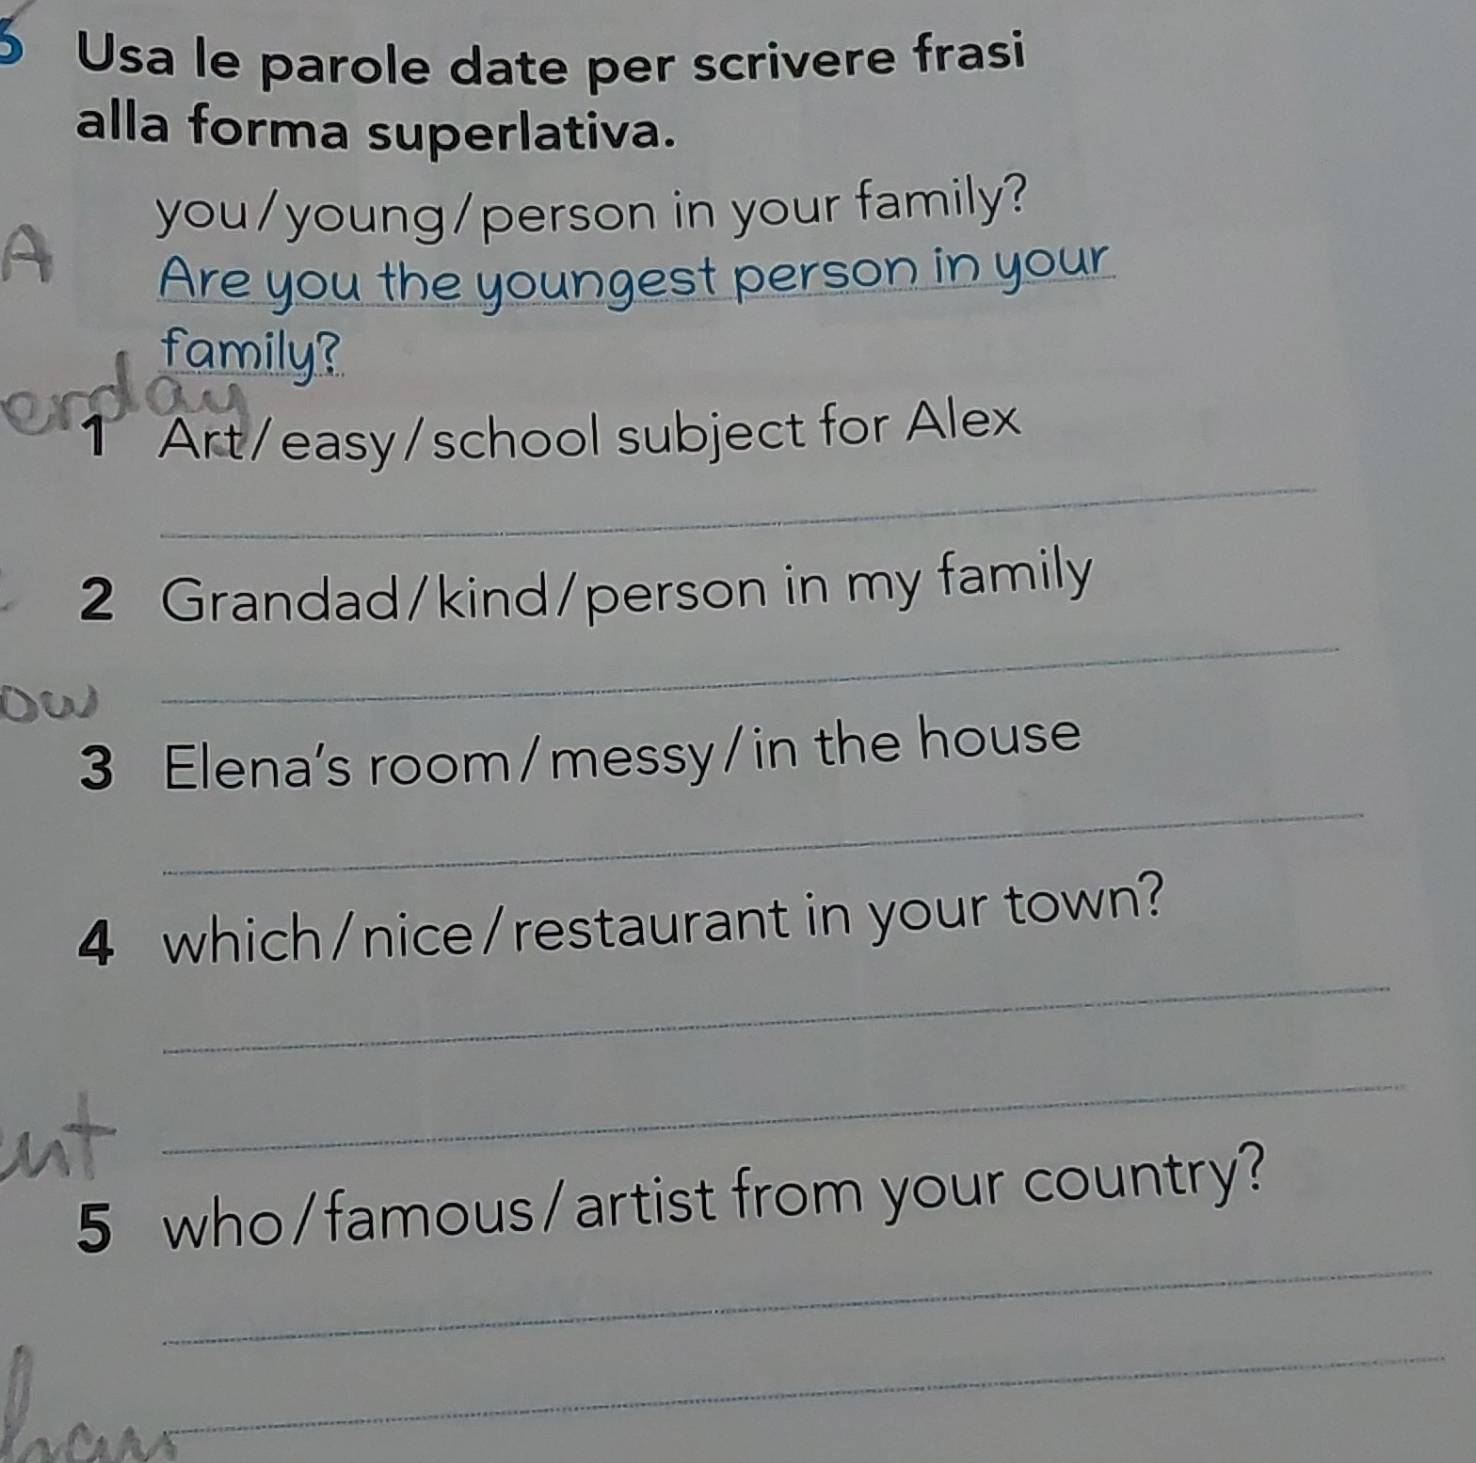 Usa le parole date per scrivere frasi
alla forma superlativa.
you/young/person in your family?
A
Are you the youngest person in your
family?
erday
1 Art/easy/school subject for Alex
2 Grandad/kind/person in my family
ow
3 Elena's room/messy/in the house
4 which/nice/restaurant in your town?
5 who/famous/artist from your country?